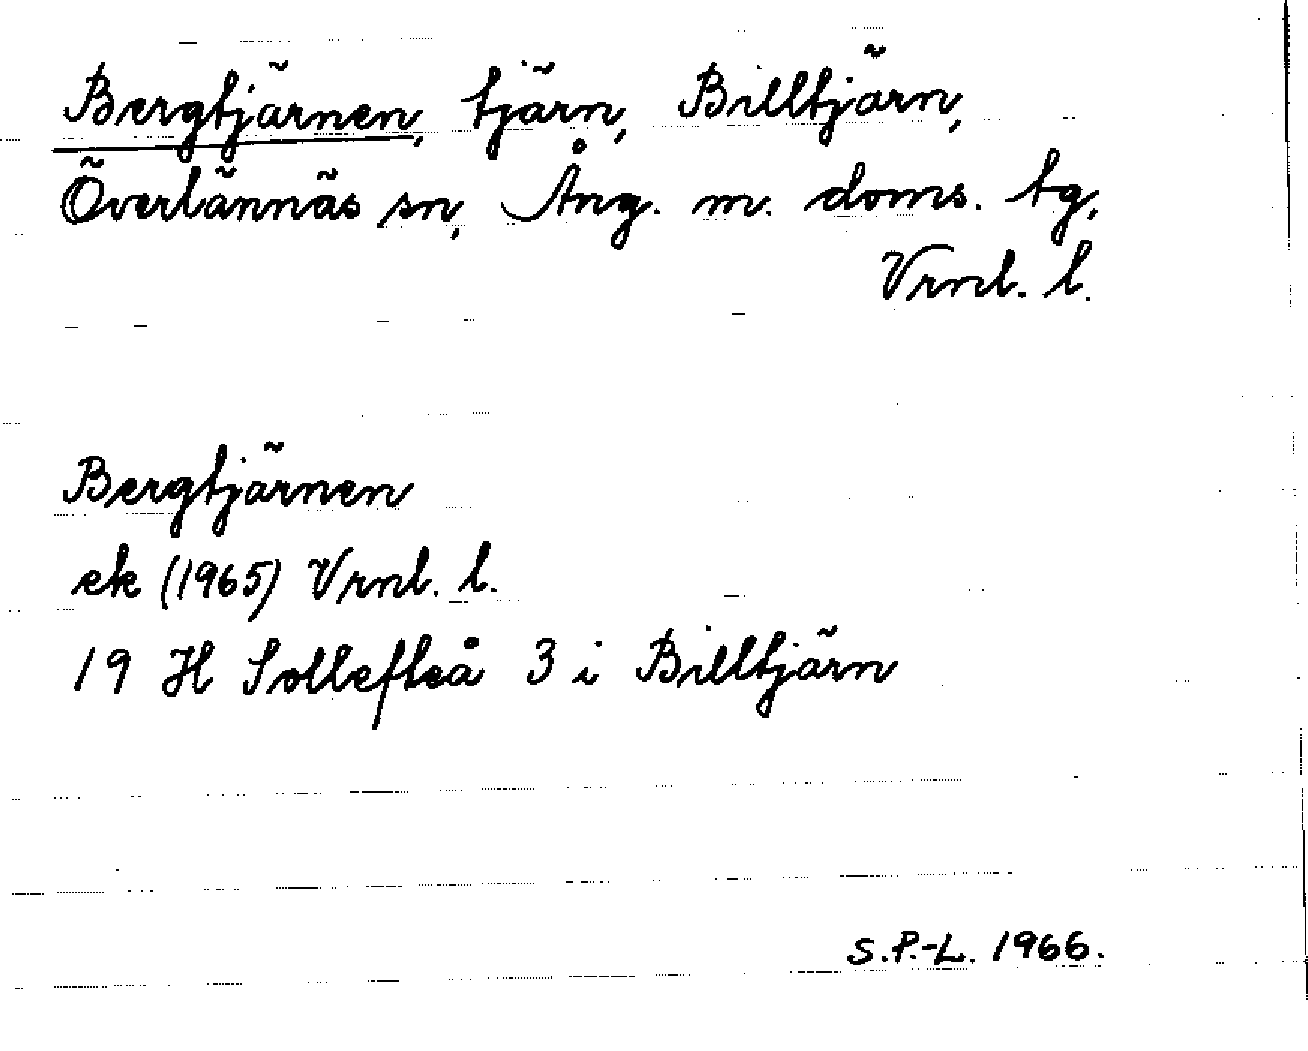 Bergtjärnen, tjärn, Billtjärn,
Överlännäs sn, Ång. m. doms. tg,
Vrnl. l.
Bergtjärnen
ek (1965) Vrnl. l.
19 H Sollefteå 3 i Billtjärn
S.P.-L. 1966.